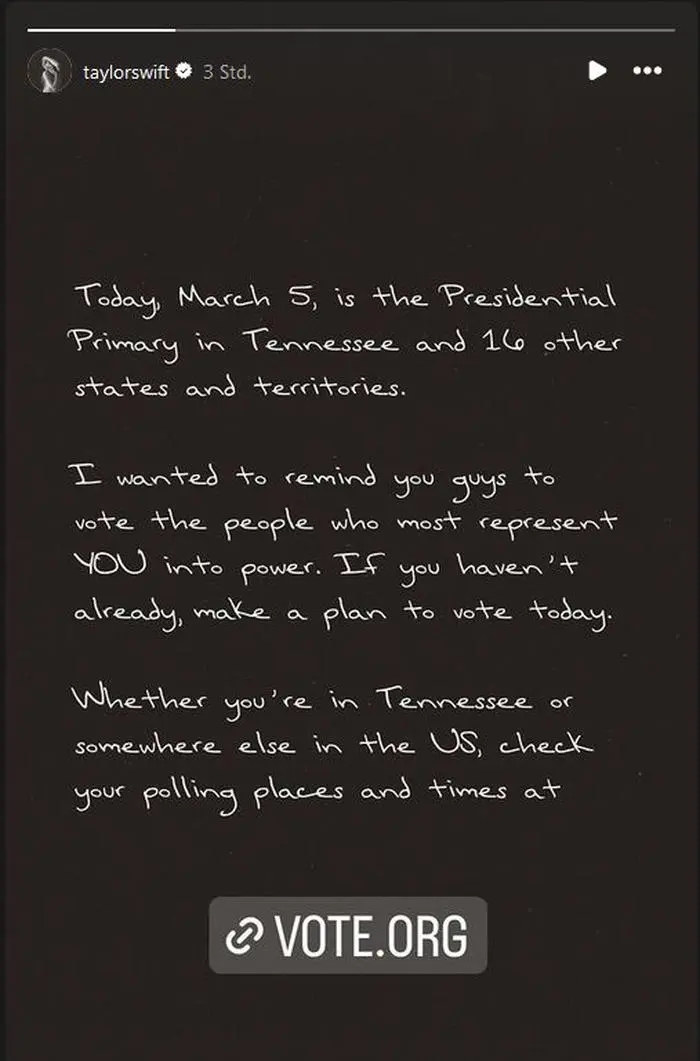 taylorswift 3 Std.
Today, March 5, is the Presidential
Primary in Tennessee and 16 other
states and territories.
I wanted to remind you guys to
vote the people who most represent
YOU into power. If you haven't
already, make a plan to vote today.
Whether you're in Tennessee or
somewhere else in the US, check
your polling places and times at
VOTE.ORG